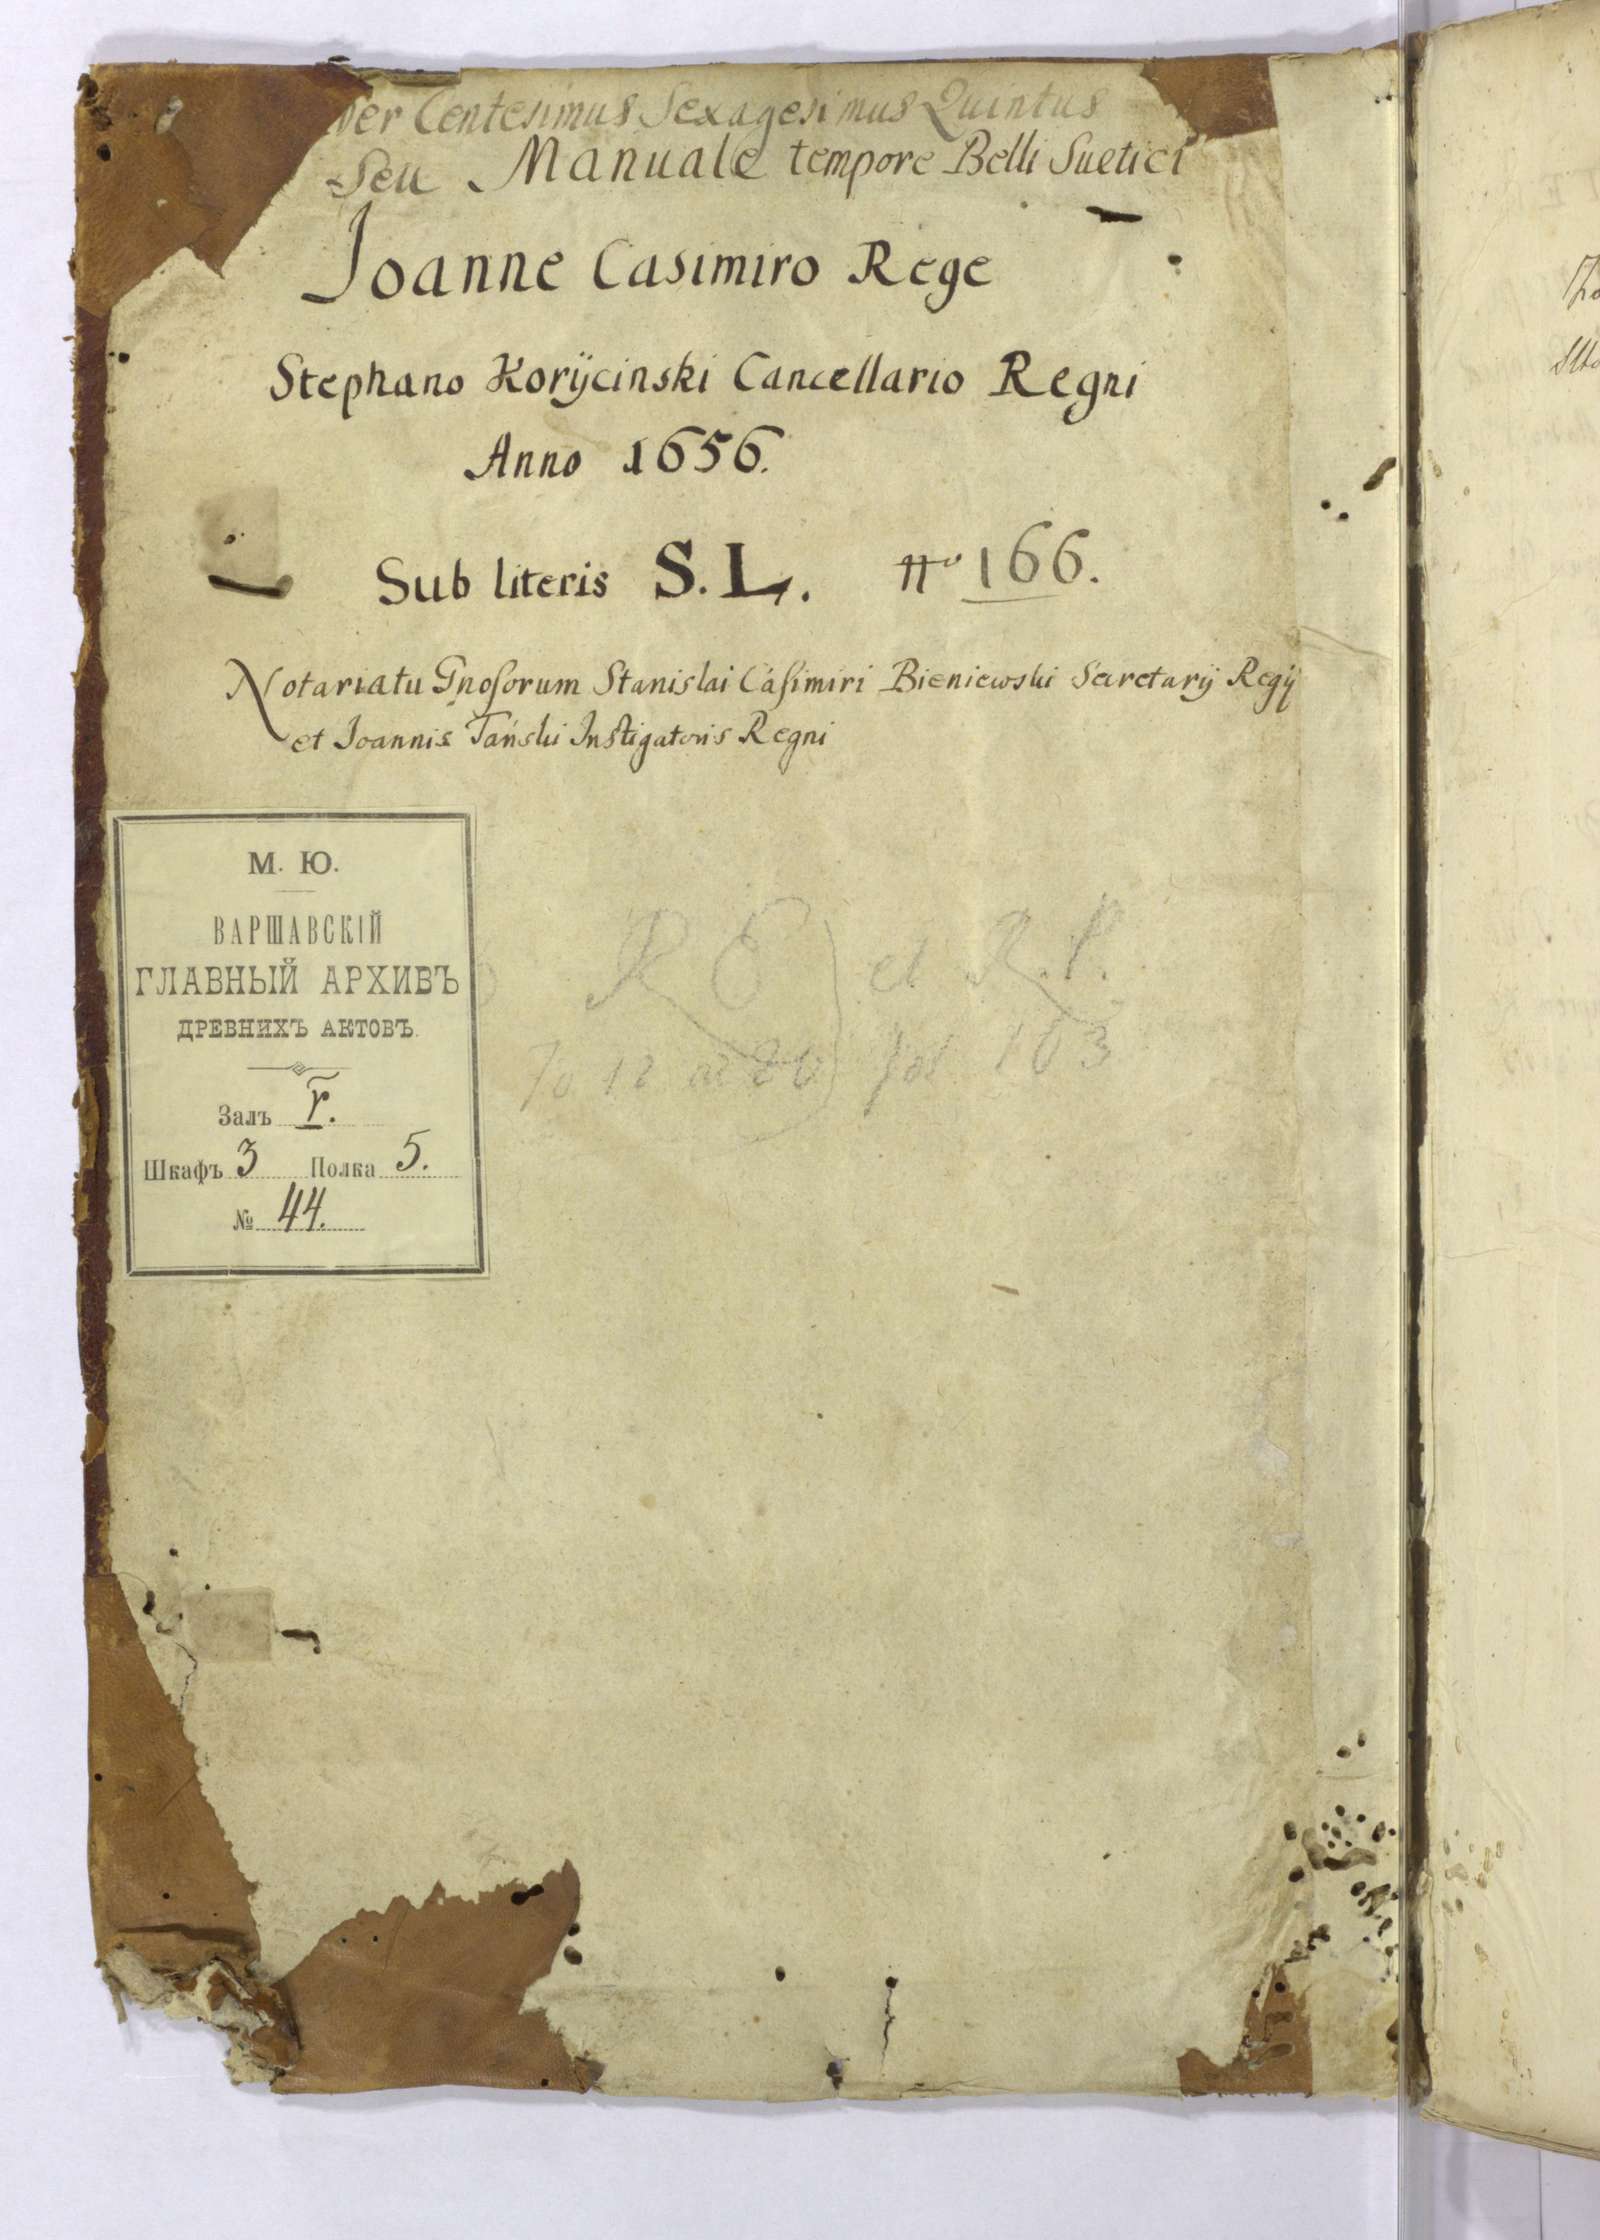 ber Centesimus Sexagesimus Quintus
Seu Manuale tempore Belli Suetici
Joanne Casimiro Rege
Stephano Korÿcinski Cancellario Regni
Anno 1656.
Sub literis S. L. No 166.
Notariatu Gnosorum Stanislai Casimiri Bieniewski Secretarij Regij
et Joannis Tański Instigatoris Regni
М. Ю.
ВАРШАВСКІЙ
ГЛАВНЫЙ АРХИВЪ
ДРЕВНИХЪ АКТОВЪ.
Залъ V.
Шкафъ 3 Полка 5.
№ 44.
et R. P.
103